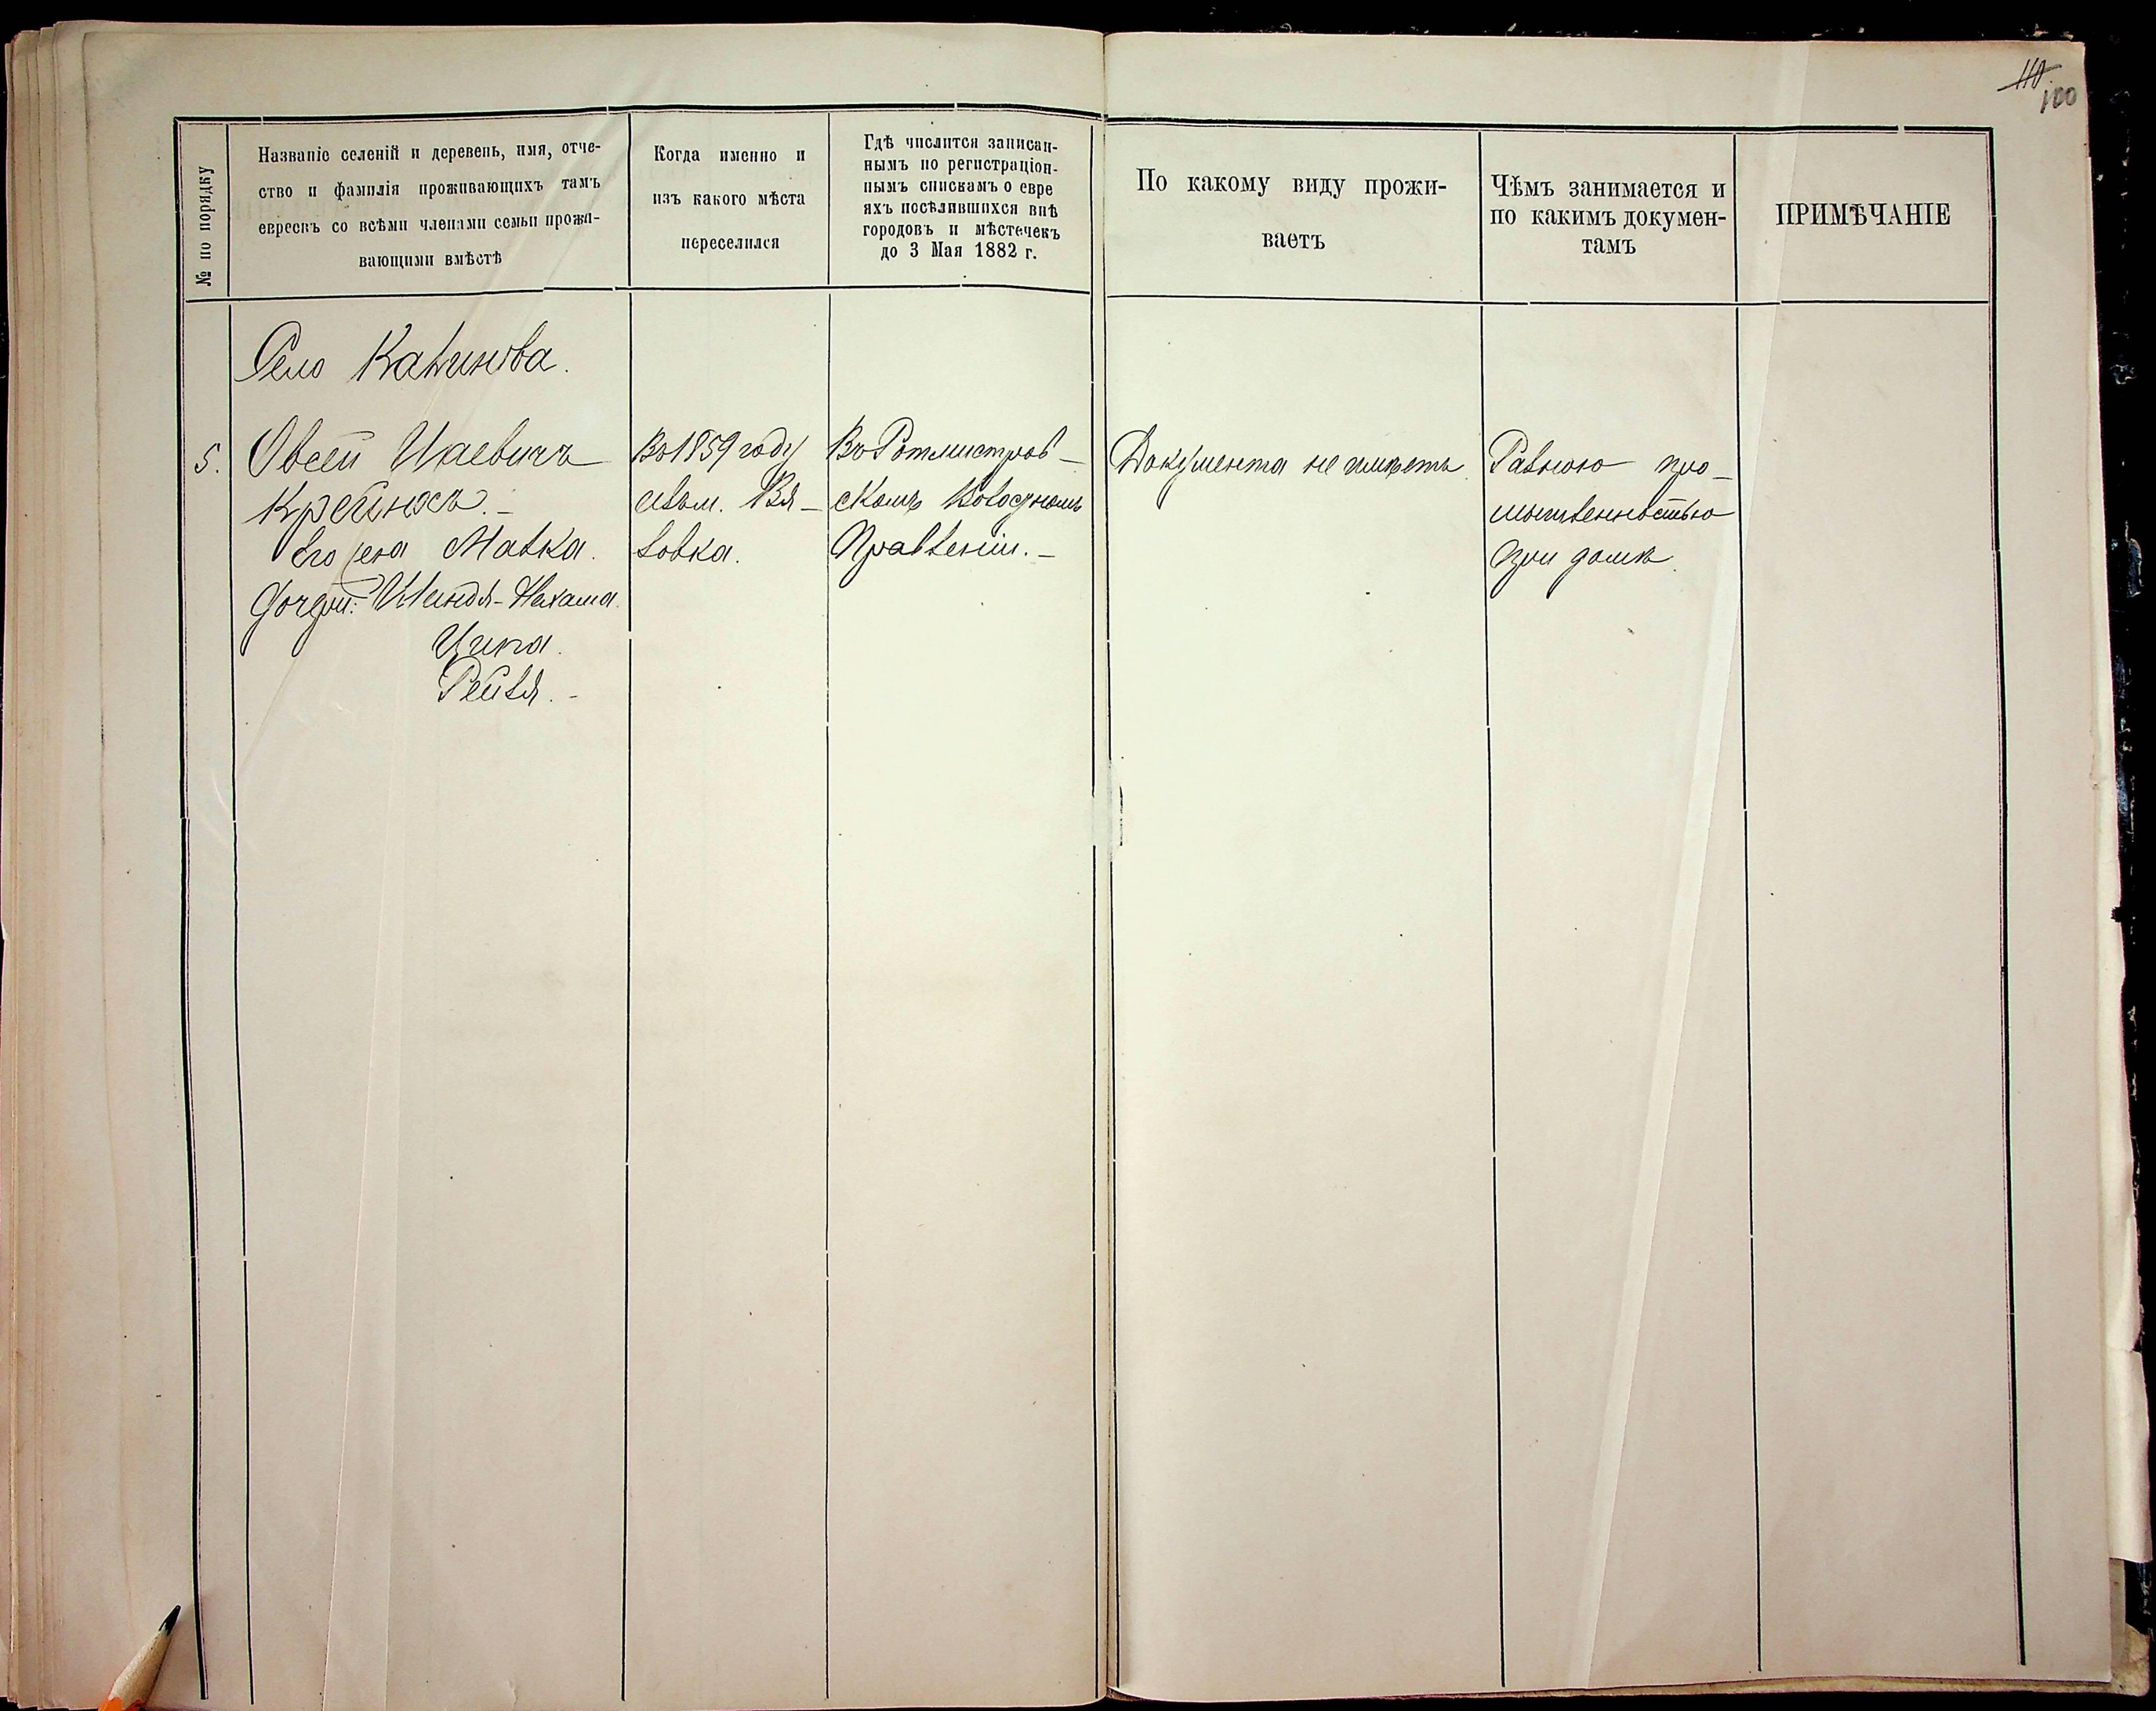 110
100
№ по порядку
Названіе селеній и деревень, имя, отче-
ство и фамилія проживающихъ тамъ
евреевъ со всѣми членами семьи прожи-
вающими вмѣстѣ
Когда именно и
изъ какого мѣста
переселился
Гдѣ числится записан-
нымъ по регистраціон-
нымъ спискамъ о евре
яхъ поселившихся внѣ
городовъ и мѣстечекъ
до 3 Мая 1882 г.
По какому виду прожи-
ваетъ
Чѣмъ занимается и
по какимъ докумен-
тамъ
ПРИМѢЧАНІЕ
Село
5.
Овсей Шаевичъ
Его жена Малка.
Дочери: Шендля-Нехама
Ципа.
Рейзя. -
Въ 1859 году
Вя-
зовка.
Въ Ротмистров-
скомъ Волостномъ
Правленіи. -
Документа не имѣетъ
Разною про-
мышленностью
при домѣ.